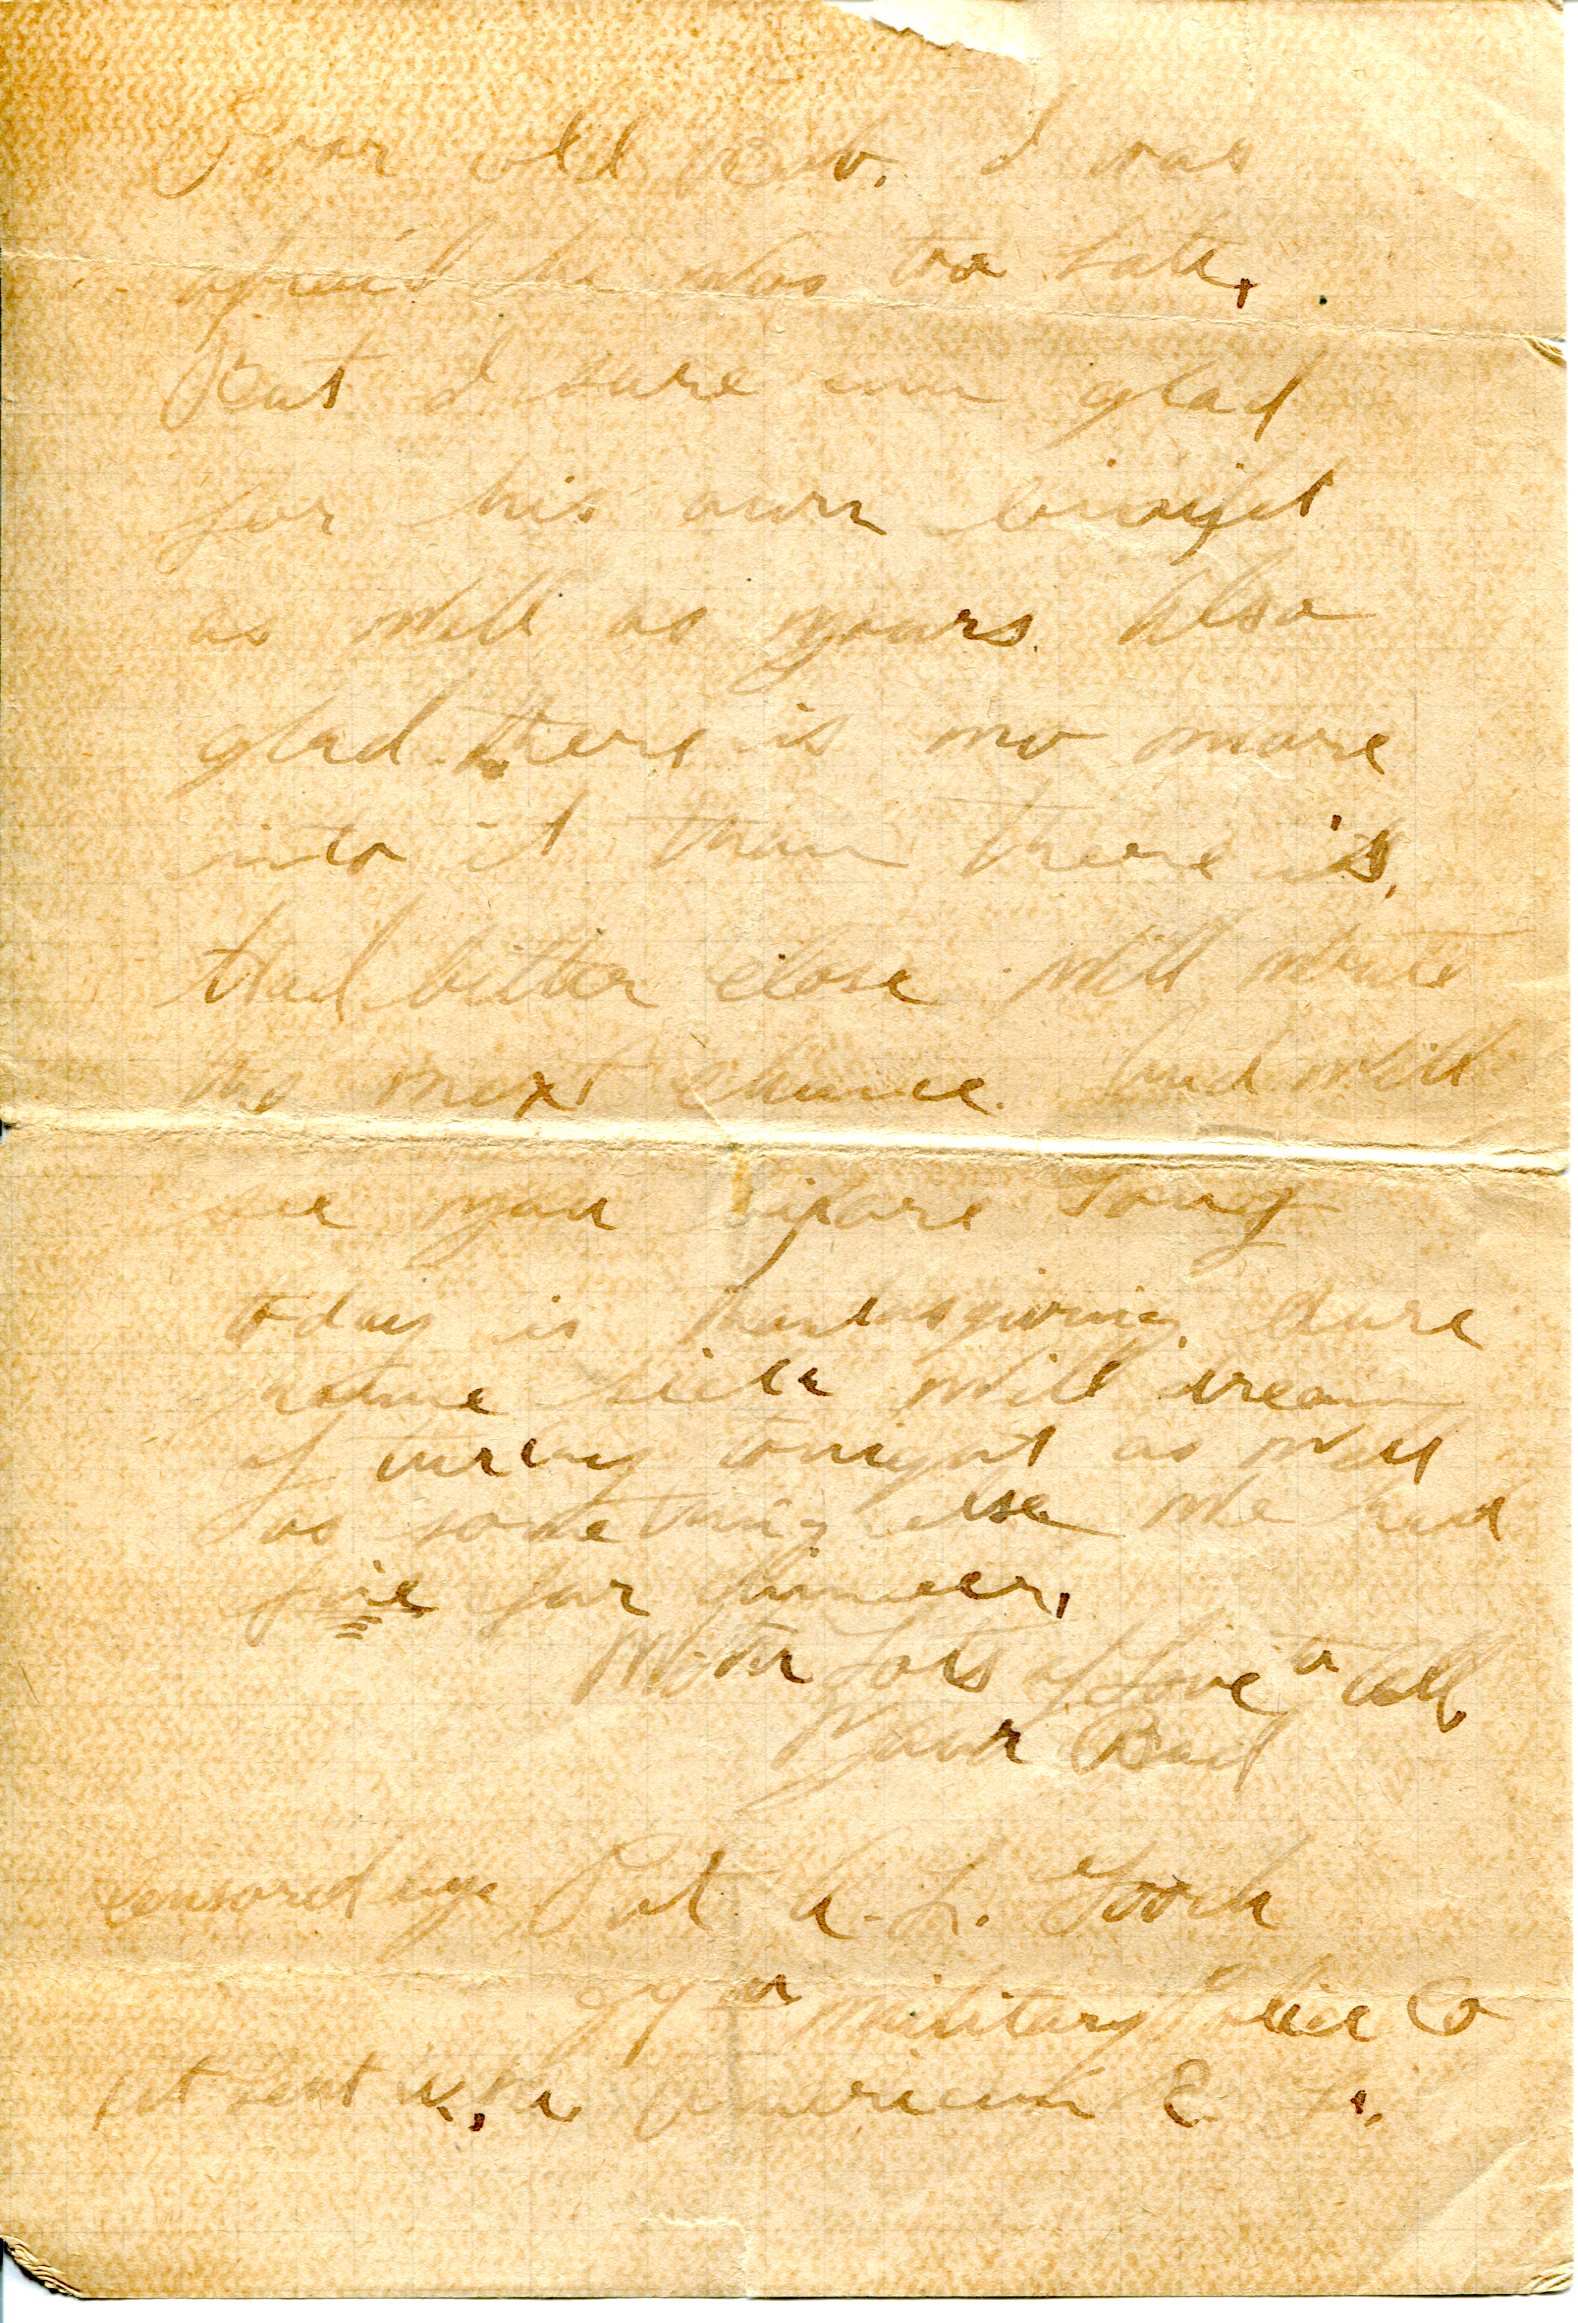 Poor old Bub. I was
afraid he was too late,
But I sure am glad
for his own
as well as yours. Also
glad there is no more
into it than there is,
Had better close will write
the next chance. and will
see you before long
today is thanksgiving
home sick will dream
of turkey tonight as well
as something else we had
for dinner,
With Lots of Love to all,
Your Bud
Censored by A. L.
military Police Co
American E. F.